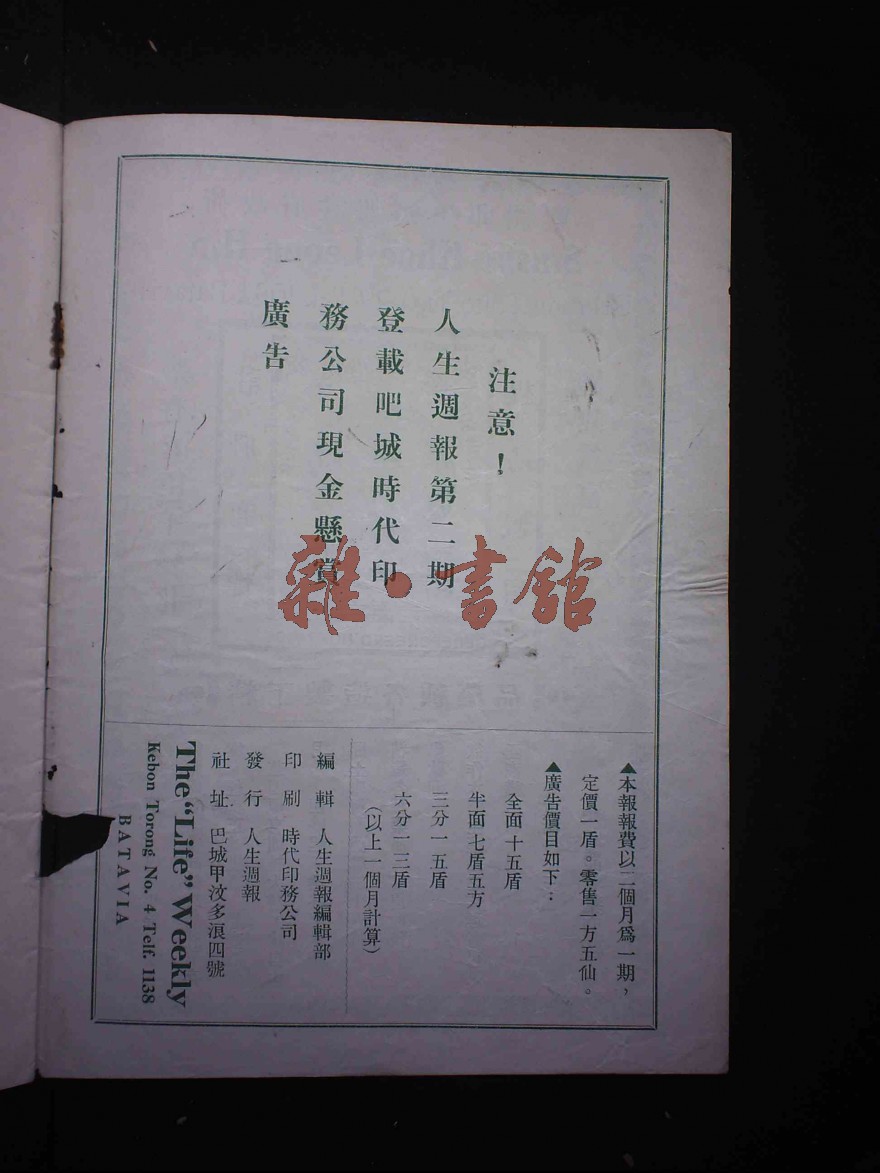 注意！
人生週報第二期
登載吧城時代印
務公司現金懸賞
廣告
雜·書館
▲本報報費以二個月爲一期，
定價一盾。零售一方五仙。
▲廣告價目如下：
全面十五盾
半面七盾五方
三分一五盾
六分一三盾
（以上一個月計算）
編輯 人生週報編輯部
印刷 時代印務公司
發行 人生週報
社址 巴城甲汶多滾四號
The "Life" Weekly
Kebon Torong No. 4 Telf. 1138
BATAVIA